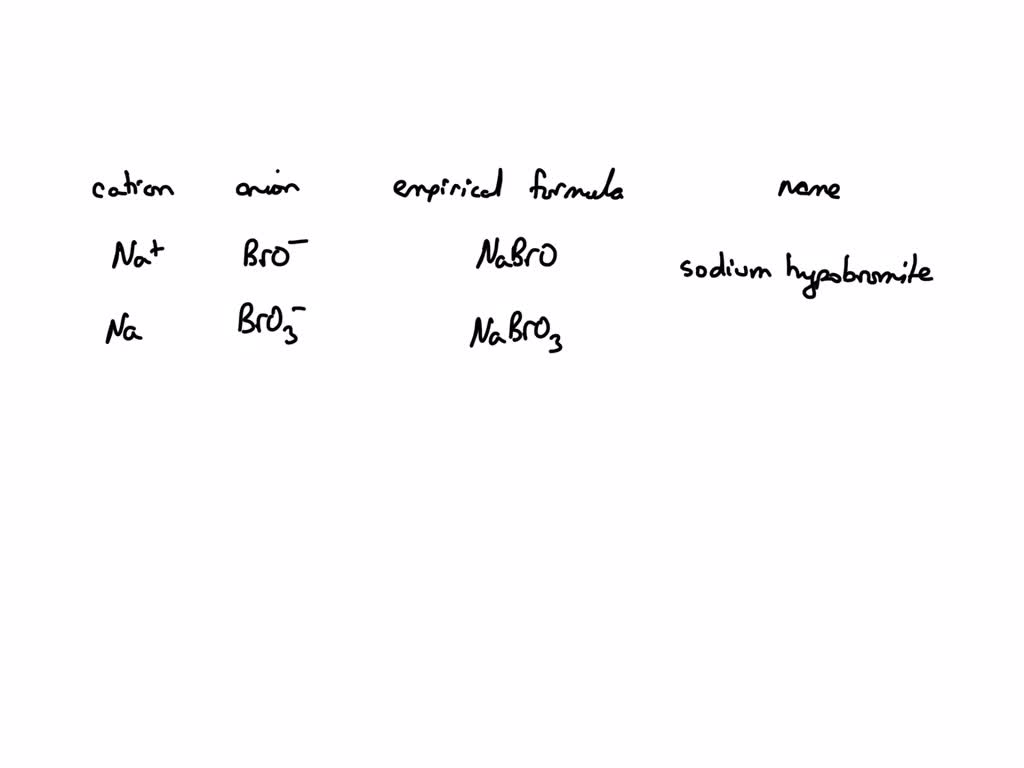 cation anion empirical formula name
Na⁺ BrO⁻ NaBrO sodium hypobromite
Na BrO₃⁻ NaBrO₃